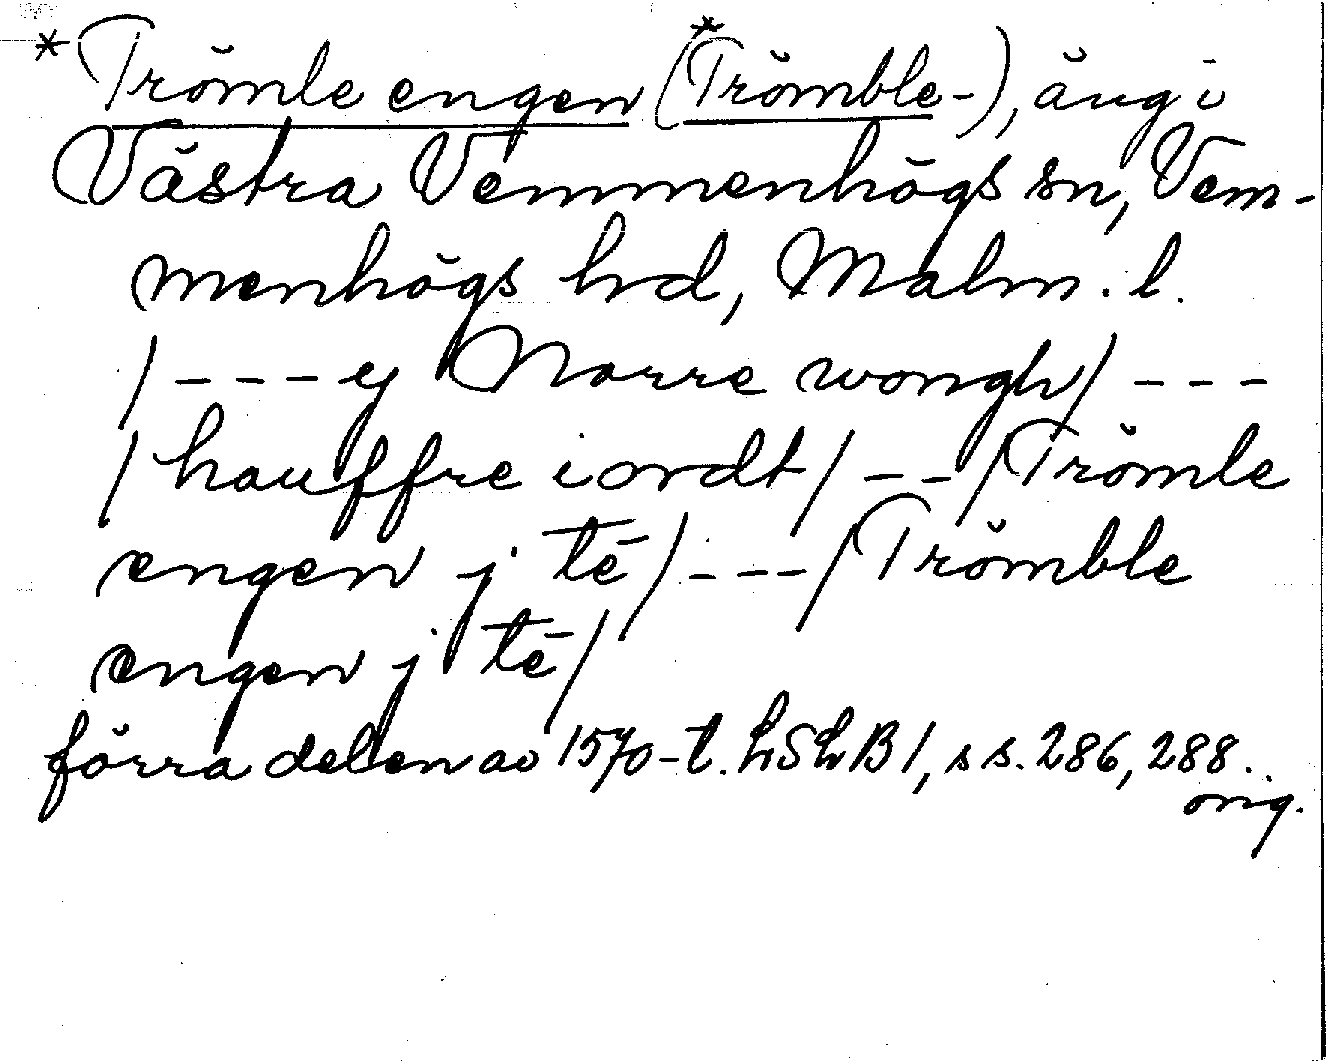 *Trömle engen (*Trömble-), äng i
Västra Vemmenhögs sn, Vem-
menhögs hd, Malm. l.
/---y Norre wongh/ ---
/hauffre iordt/ -- /Trömle
engen j tē/ --- /Trömble
engen j tē/
förra delen av 1570-t. LSLB 1, ss. 286, 288.
orig.